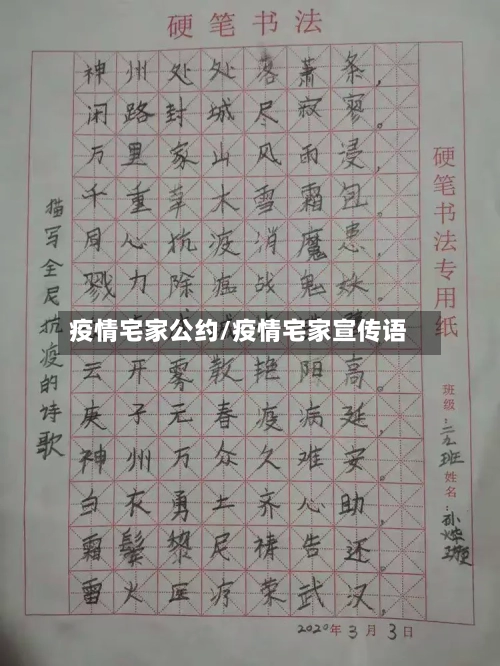 硬笔书法
神州处处落萧条，
闭路封城尽寂寥。
万里家山风雨浸，
千重草木雪霜包。
同心抗疫消魔患，
戮力除瘟战鬼妖。
疫情宅家公约/疫情宅家宣传语
云开雾散艳阳高。
庚子元春疫病延，
神州万众久难安。
白衣勇士齐心助，
霜鬓黎尼祷告还。
雷火医疗荣武汉，
描写全尼抗疫的诗歌
硬笔书法专用纸
班级：三2班 姓名：孙烨
2020年3月3日